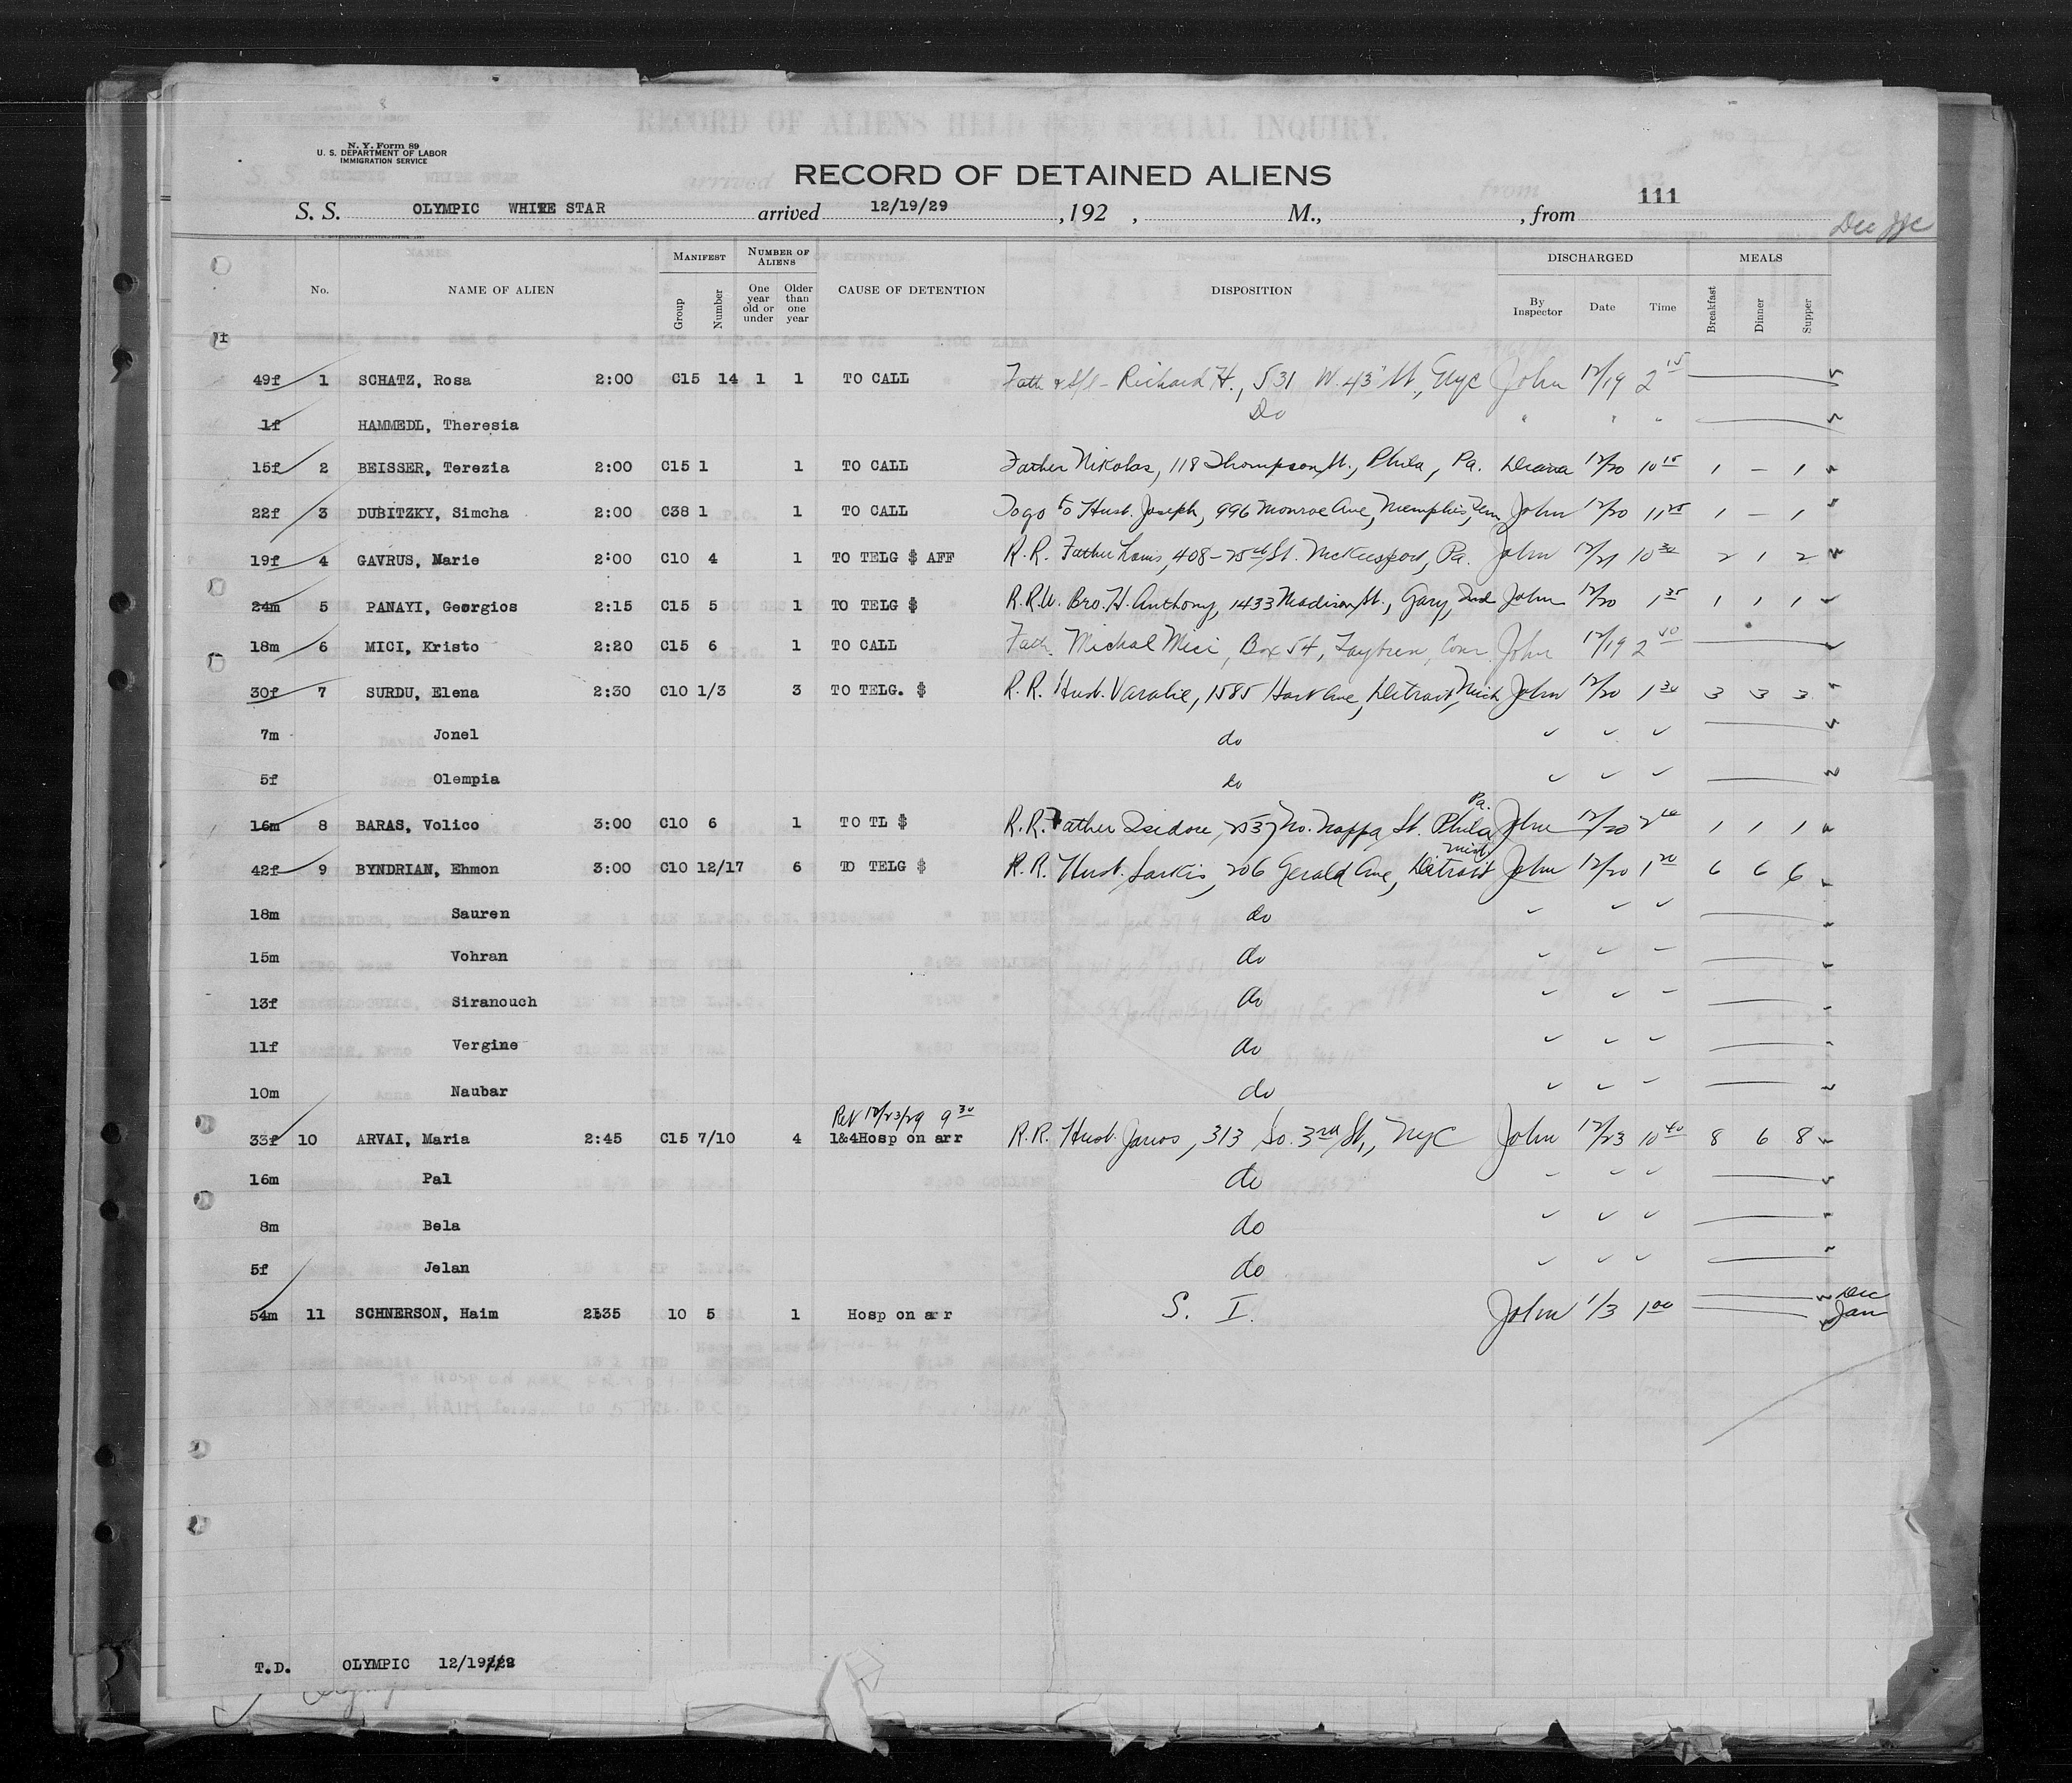 N. Y. Form 89
U. S. DEPARTMENT OF LABOR
IMMIGRATION SERVICE
RECORD OF DETAINED ALIENS
S. S. OLYMPIC WHITE STAR arrived 12/19/29 , 192 , M., , from 111
Dec
No. NAME OF ALIEN MANIFEST Group Number NUMBER OF ALIENS One year old or under Older than one year CAUSE OF DETENTION DISPOSITION DISCHARGED By Inspector Date Time MEALS Breakfast Dinner Supper
49f 1 SCHATZ, Rosa 2:00 C15 14 1 1 TO CALL Richard H., 531 W. 43" St., NYC John 12/19 2 15
1f HAMMEDL, Theresia Do " " "
15f 2 BEISSER, Terezia 2:00 C15 1 1 TO CALL Father Nikolas, 118 Thompson St., Phila, Pa. 12/20 10 15 1 – 1
22f 3 DUBITZKY, Simcha 2:00 C38 1 1 TO CALL To go to Husb. Joseph, 996 Monroe Ave, Memphis, Tenn John 12/20 11 25 1 – 1
19f 4 GAVRUS, Marie 2:00 C10 4 1 TO TELG $ AFF R.R. Father Louis, 408-25th St. McKeesport, Pa. John 12/21 10 30 2 1 2
24m 5 PANAYI, Georgios 2:15 C15 5 1 TO TELG $ R.R.W. Bro. H. Anthony, 1433 Madison St., Gary, Ind John 12/20 1 35 1 1 1
18m 6 MICI, Kristo 2:20 C15 6 1 TO CALL Fath. Michal Mici, Box 54, Conn. John 12/19 2 40
30f 7 SURDU, Elena 2:30 C10 1/3 3 TO TELG. $ R.R. Husb. 1585 Hart Ave, Detroit, Mich John 12/20 1 30 3 3 3
7m Jonel do
5f Olempia do
16m 8 BARAS, Volico 3:00 C10 6 1 TO TL $ R.R. Father Isidore, 2537 No. Nappa St. Phila Pa. John 12/20 2 10 1 1 1
42f 9 BYNDRIAN, Ehmon 3:00 C10 12/17 6 TO TELG $ R.R. Husb. Sarkis, 206 Gerald Ave, Detroit Mich John 12/20 1 20 6 6 6
18m Sauren do
15m Vohran do
13f Siranouch do
11f Vergine do
10m Naubar do
Ret 12/23/29 9 30
33f 10 ARVAI, Maria 2:45 C15 7/10 4 1&4Hosp on arr R.R. Husb. Janos, 313 So. 3rd St., NYC John 12/23 10 40 8 6 8
16m Pal do
8m Bela do
5f Jelan do
54m 11 SCHNERSON, Haim 2:35 10 5 1 Hosp on arr S. I. John 1/3 1 00 Dec
Jan
T.D. OLYMPIC 12/19